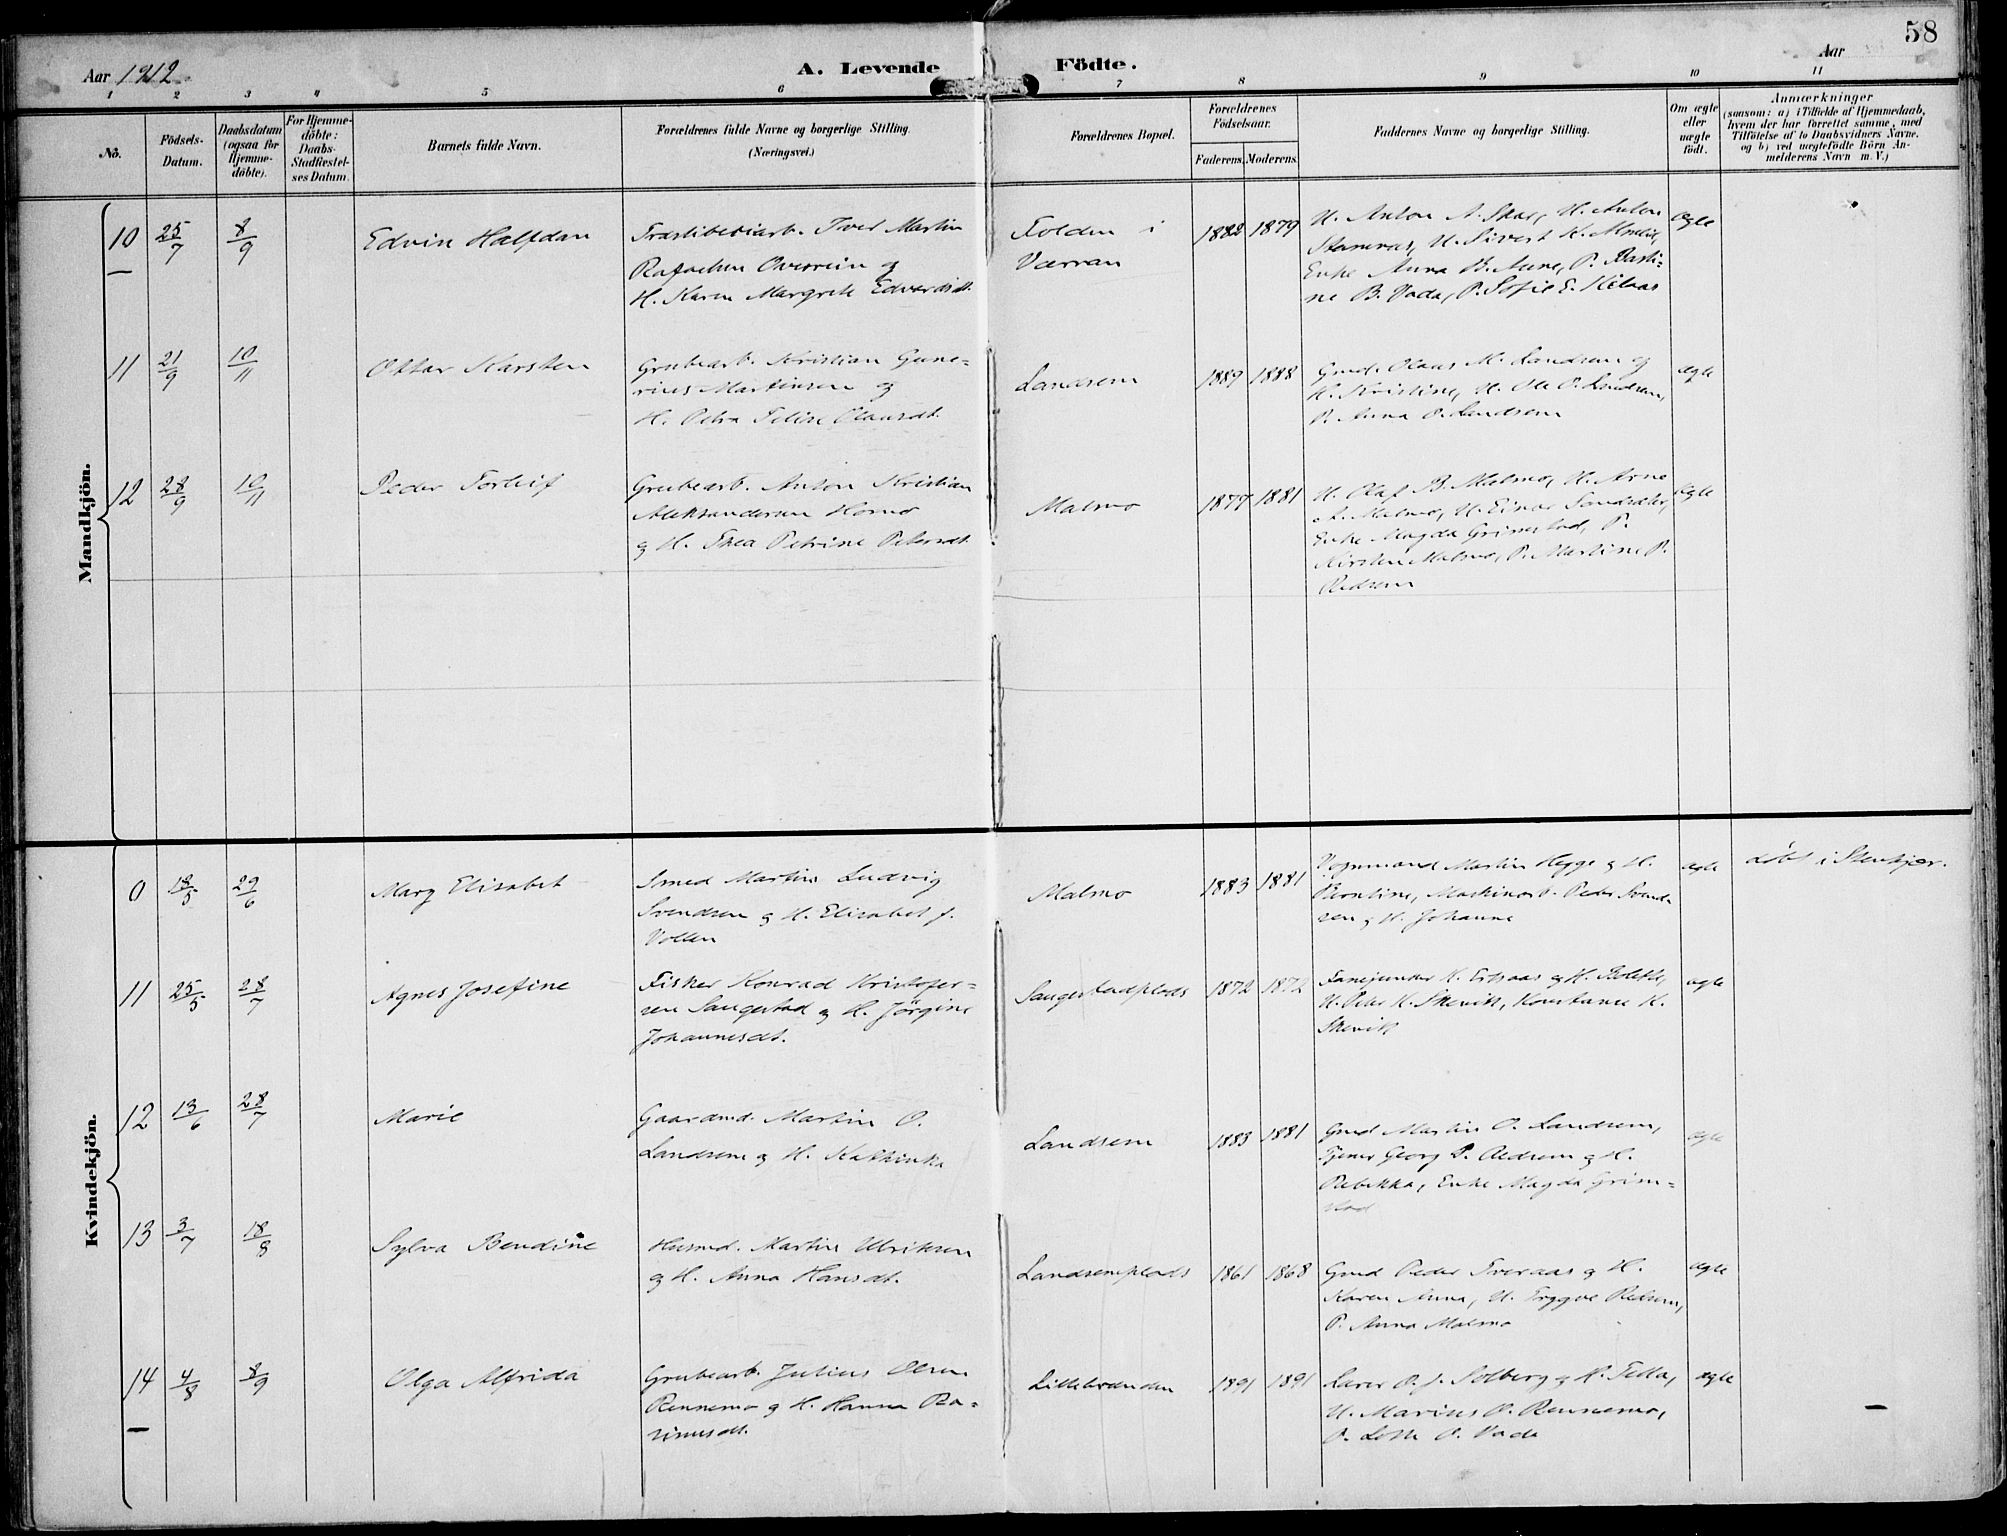 58
Aar 1912.
A. Levende Födte.
Aar
1 2 3 4 5 6 7 8 9 10 11
No.
Födsels-Datum.
Daabsdatum (ogsaa for Hjemme-döbte).
For Hjemme-döbte: Daabs-Stadfæstelses Datum.
Barnets fulde Navn.
Forældrenes fulde Navne og borgerlige Stilling. (Næringsvei.)
Forældrenes Bopæl.
Forældrenes Födselsaar.
Faderens. Moderens.
Faddernes Navne og borgerlige Stilling.
Om ægte eller uægte födt.
Anmærkninger
(saasom: a) i Tilfælde af Hjemmedaab,
hvem der har forrettet samme, med
Tilföielse af to Daabsvidners Navne.
og b) ved uægtefödte Börn An-
melderens Navn m. V.)
Mandkjön.
10 25/7 8/9 Edvin Halfdan
Træsliberiarb. Iver Martin
Rafaelsen Overrein og
H. Karen Margrete Edvardsdt.
Folden i
Værran
1882 1879
U. Anton A. Skar, U. Anton
U. Sivert K.
Enke Anna B. Aune, P.
ne B. Vada, P. Sofie E.
ægte
11 21/9 10/11 Ottar Karsten
Grubearb. Kristian Gune-
rius Martinsen og
H. Petra Feline Olausdt.
Landsem
1889 1888
Gmd. Olaus M. Landsem og
H. Kristine, U. Ole P. Landsem,
P. Anna O. Landsem
ægte
12 28/9 10/11 Peder Torleif
Grubearb. Anton Kristian
Aleksandersen
og H. Thea Petrine Petersdt.
Malmo
1877 1881
U. Olaf B. Malmo, U. Arne
A. Malmo, U. Einar
Enke Magda Grimstad, P.
Kirsten Malmo, P. Martine P.
Redsem
ægte
Kvindekjön.
0 18/5 29/6 Mary Elisabet
Smed Martin Ludvig
Svendsen og H. Elisabet J.
Vollen
Malmo
1883 1881
Vognmand Martin Hegge og H.
Berntine, Maskinarb. Peder Svend-
sen og H. Johanne
ægte
döbt i Stenkjær.
11 25/5 28/7 Agnes Josefine
Fisker Konrad Kristofer-
sen Saugestad og H. Jörgine
Johannesdt.
Saugestadplads
1872 1872
U. Peter K. Skevik, Konstance K.
Skevik
ægte
12 13/6 28/7 Marie
Gaardmd. Martin O.
Landsem og H. Kathinka
Landsem
1883 1881
Gmd Martin O. Landsem,
Georg P. Redsem og H.
Rebekka, Enke Magda Grim-
stad
ægte
13 3/7 18/8 Sylva Bendine
Husmd. Martin Ulriksen
og H. Anna Hansdt.
Landsemplads
1861 1868
Gmd Peder Tveraas og H.
Karen Anna, U. Trygve Redsem,
P. Anna Malmo
ægte
14 4/8 8/9 Olga Alfrida
Grubearb. Julius Olsen
Rennemo og H. Hanna Ra-
simusdt.
1891 1891
Lærer O. J. Solberg og H. Tella,
U. Marius O. Rennemo,
P. Lotte O. Vada
ægte